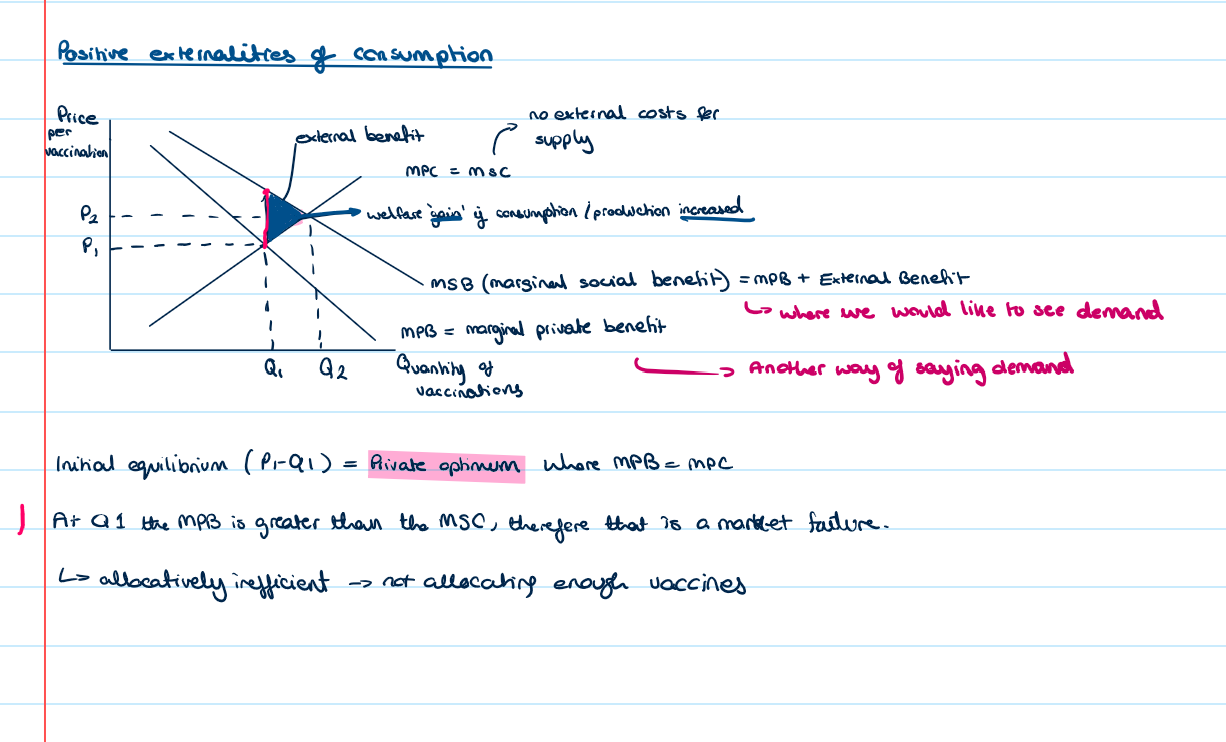 Positive externalities of consumption
Price
per
vaccination
external benefit
no external costs for
supply
MPC = MSC
P2
welfare 'gain' if consumption / production increased
P1
MSB (marginal social benefit) = MPB + External Benefit
↳ where we would like to see demand
MPB = marginal private benefit
Q1 Q2
Quantity of
vaccinations
→ Another way of saying demand
Initial equilibrium (P1-Q1) = Private optimum where MPB = MPC
At Q1 the MPB is greater than the MSC, therefore that is a market failure.
↳ allocatively inefficient → not allocating enough vaccines